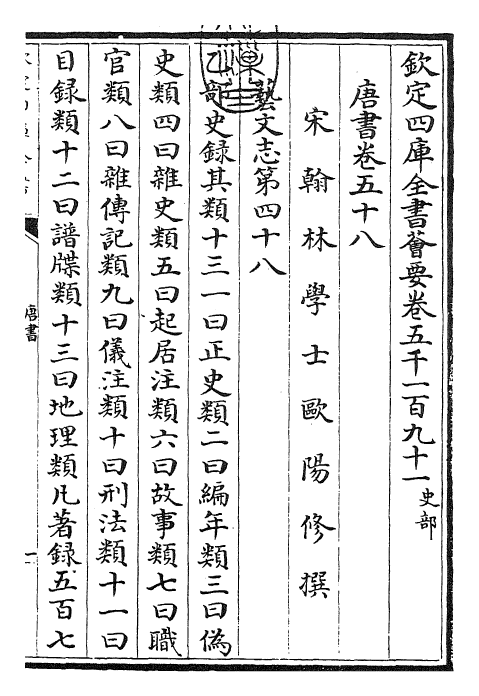 欽定四庫全書薈要卷五千一百九十一史部
唐書卷五十八
宋翰林學士歐陽修撰
藝文志第四十八
乙部史録其類十三一曰正史類二曰編年類三曰偽
史類四曰雜史類五曰起居注類六曰故事類七曰職
官類八曰雜傳記類九曰儀注類十曰刑法類十一曰
目録類十二曰譜牒類十三曰地理類凡著録五百七
唐書
一